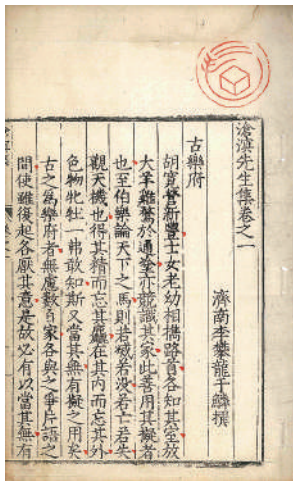 滄溟先生集卷之一
濟南李攀龍于鱗撰
古樂府
胡寬營新豐士女老幼相攜路首各知其室放
犬羊雞鶩於通塗亦競識其家此善用其擬者
也至伯樂論天下之馬則若滅若沒若亡若失
觀天機也得其精而忘其麤在其內而忘其外
色物牝牡一弗敢知斯又當其無有擬之用矣
古之為樂府者無慮數百家各與之爭片語之
間使雖復起各厭其意是故必有以當其無有